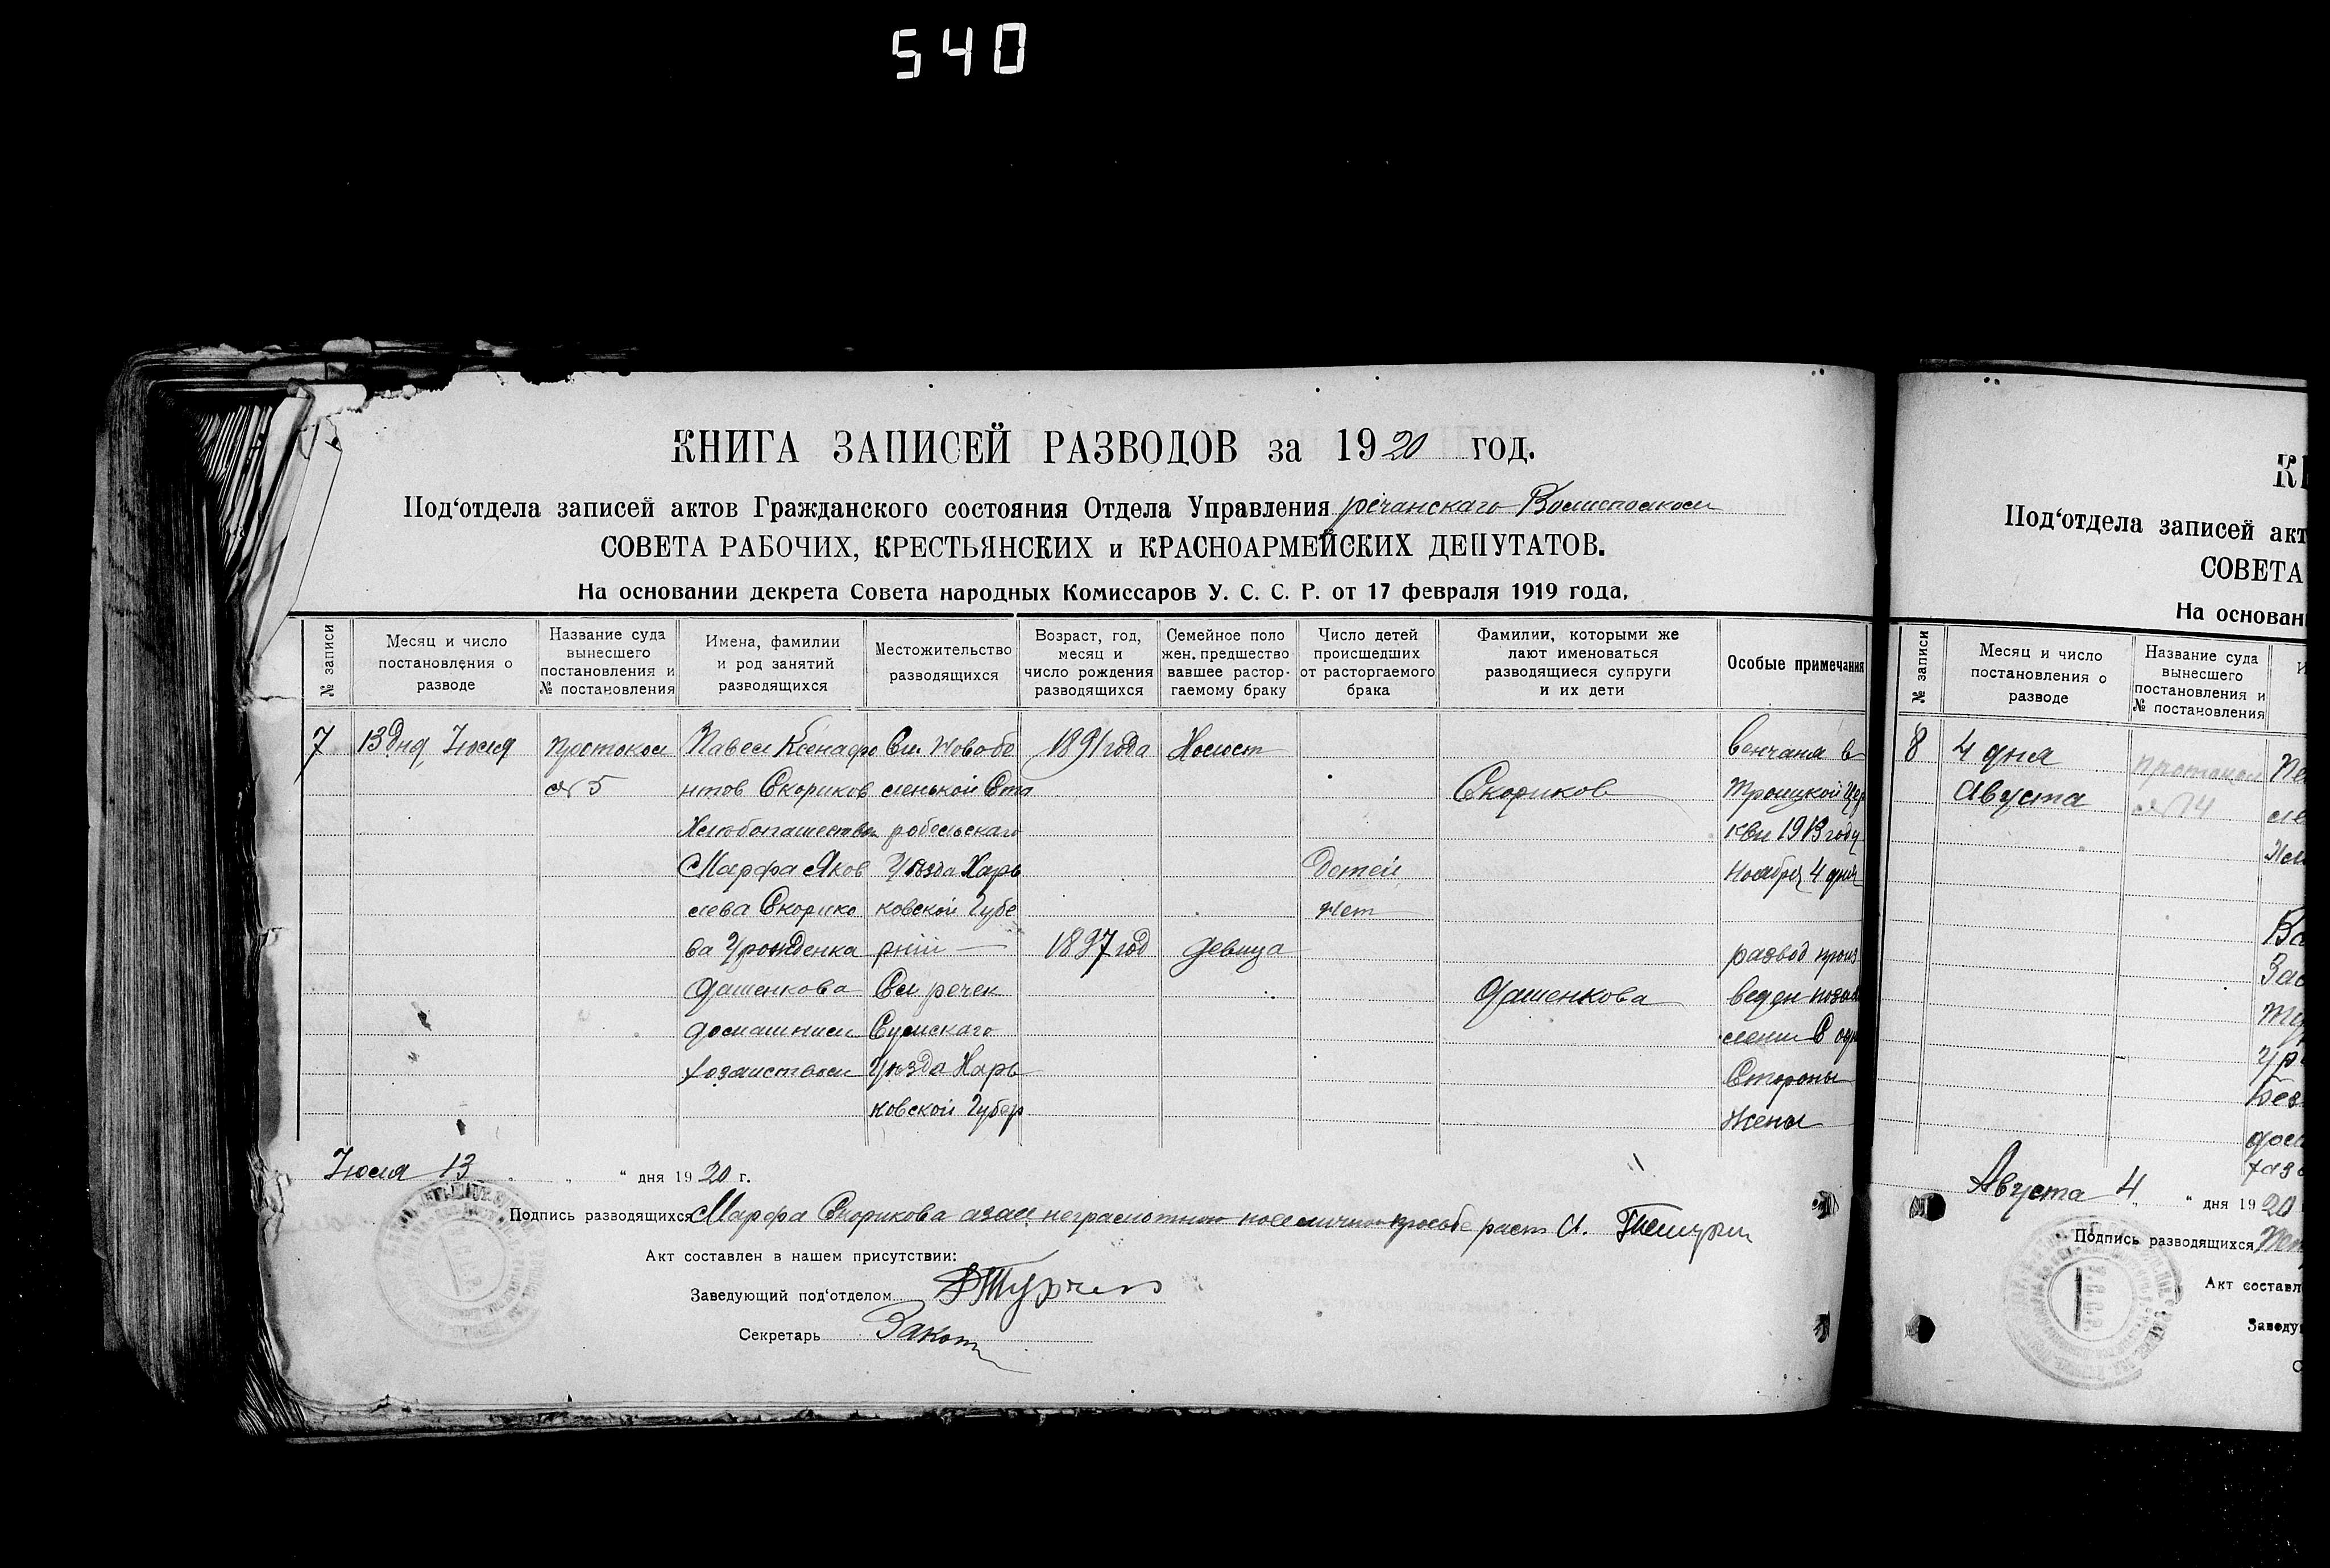 540
КНИГА ЗАПИСЕЙ РАЗВОДОВ за 1920 год.
Под‘отдела записей актов Гражданского состояния Отдела Управления речанскаго Волисполком
СОВЕТА РАБОЧИХ, КРЕСТЬЯНСКИХ и КРАСНОАРМЕЙСКИХ ДЕПУТАТОВ.
На основании декрета Совета народных Комиссаров У. С. С. Р. от 17 февраля 1919 года.
№ записи
Месяц и число
постановления о
разводе
Название суда
вынесшего
постановления и
№ постановления
Имена, фамилии
и род занятий
разводящихся
Местожительство
разводящихся
Возраст, год,
месяц и
число рождения
разводящихся
Семейное поло
жен. предшество
вавшее растор-
гаемому браку
Число детей
происшедших
от расторгаемого
брака
Фамилии, которыми же
лают именоваться
разводящиеся супруги
и их дети
Особые примечания
7
13 дня Июля
протокол
№ 5
Павел Ксенафо
нтов Скориков
Хлебопашество
Марфа Яков
лева Скорико
ва Урожденка
Дашенкова
домашним
хозаиством
Сл. Новобе
ленькой Ста
робельскаго
Уезда Харь
ковской Губе
рнии
Сел речек
Сумскаго
Уезда Харь
ковской Губер
1891 года
1897 год
Холост
девица
Детей
нет
Скориков
Дашенкова
венчана в
Троицкой Цер
кви 1913 году
Ноября 4 дня
развод произ
веден позав
лению С одн
Стороны
жены
Июля 13 “ дня 1920 г.
Подпись разводящихся Марфа Скорикова азаее неграмотною поее личной прозбе расп
Акт составлен в нашем присутствии:
Заведующий под‘отделом
Секретарь
КН
Под‘отдела записей акт
СОВЕТА
На основан
№ записи
Месяц и число
постановления о
разводе
Название суда
вынесшего
постановления и
№ постановления
8
4 дня
Августа
протокол
№ 14
Августа 4 “ дня 1920
Подпись разводящихся
Акт составл
Заведу
С